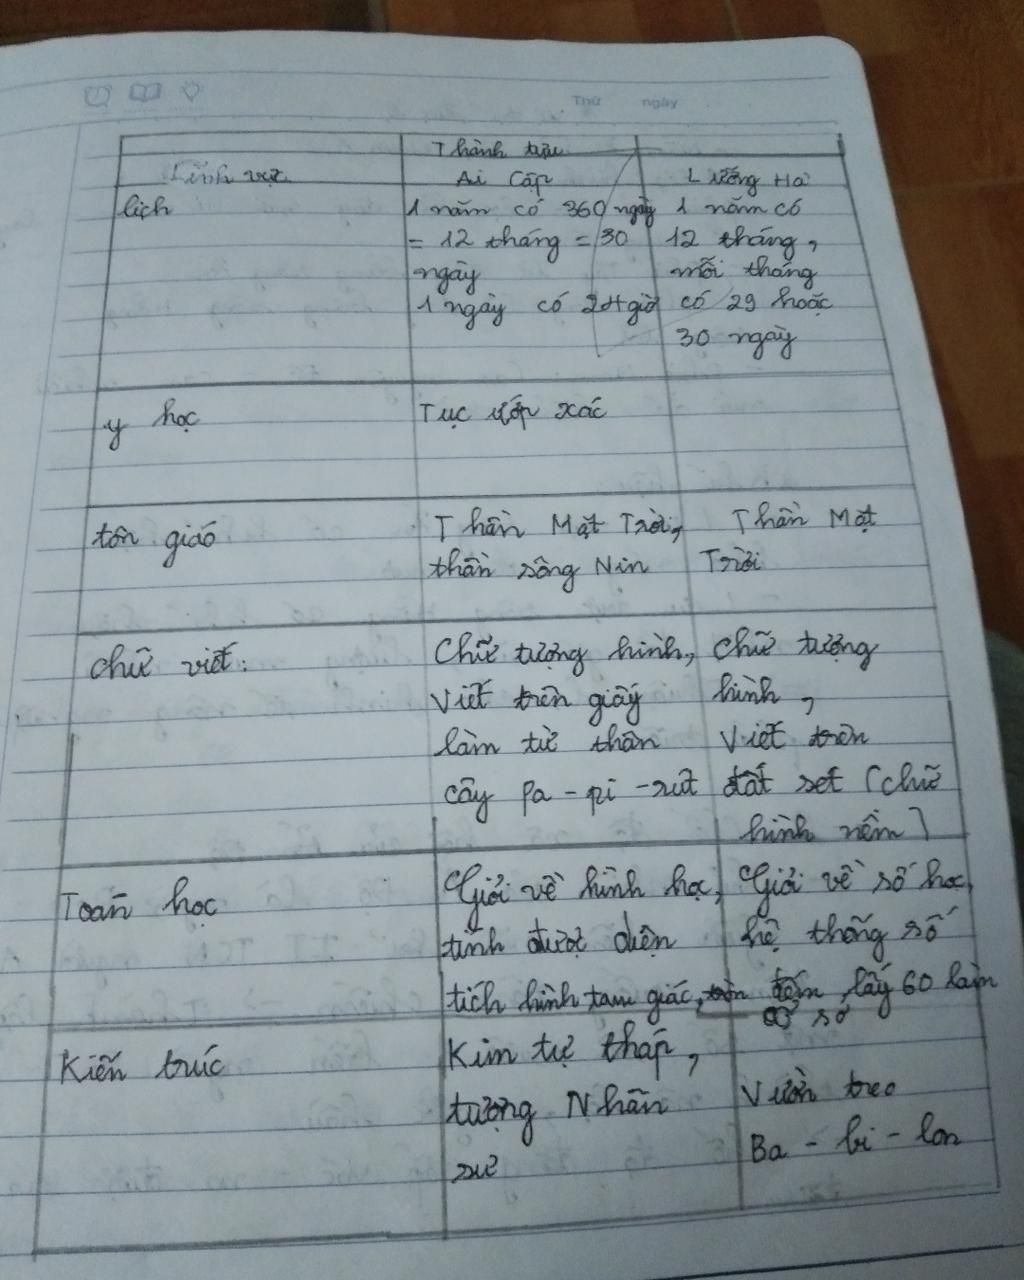 Thứ ngày
Thành tựu
Lĩnh vực Ai Cập Lưỡng Hà
lịch 1 năm có 360 ngày 1 năm có
= 12 tháng = 30 12 tháng,
ngày mỗi tháng
1 ngày có 24 giờ có 29 hoặc
30 ngày
y học Tục ướp xác
tôn giáo Thần Mặt Trời, Thần Mặt
thần sông Nin Trời
chữ viết: Chữ tượng hình, chữ tượng
viết trên giấy hình,
làm từ thân viết trên
cây pa-pi-rút đất sét (chữ
hình nêm)
Toán học Giỏi về hình học, Giỏi về số học,
tính được diện hệ thống số
tích hình tam giác, đếm, lấy 60 làm
cơ số
Kiến trúc Kim tự tháp,
tượng Nhân Vườn treo
sư Ba-bi-lon